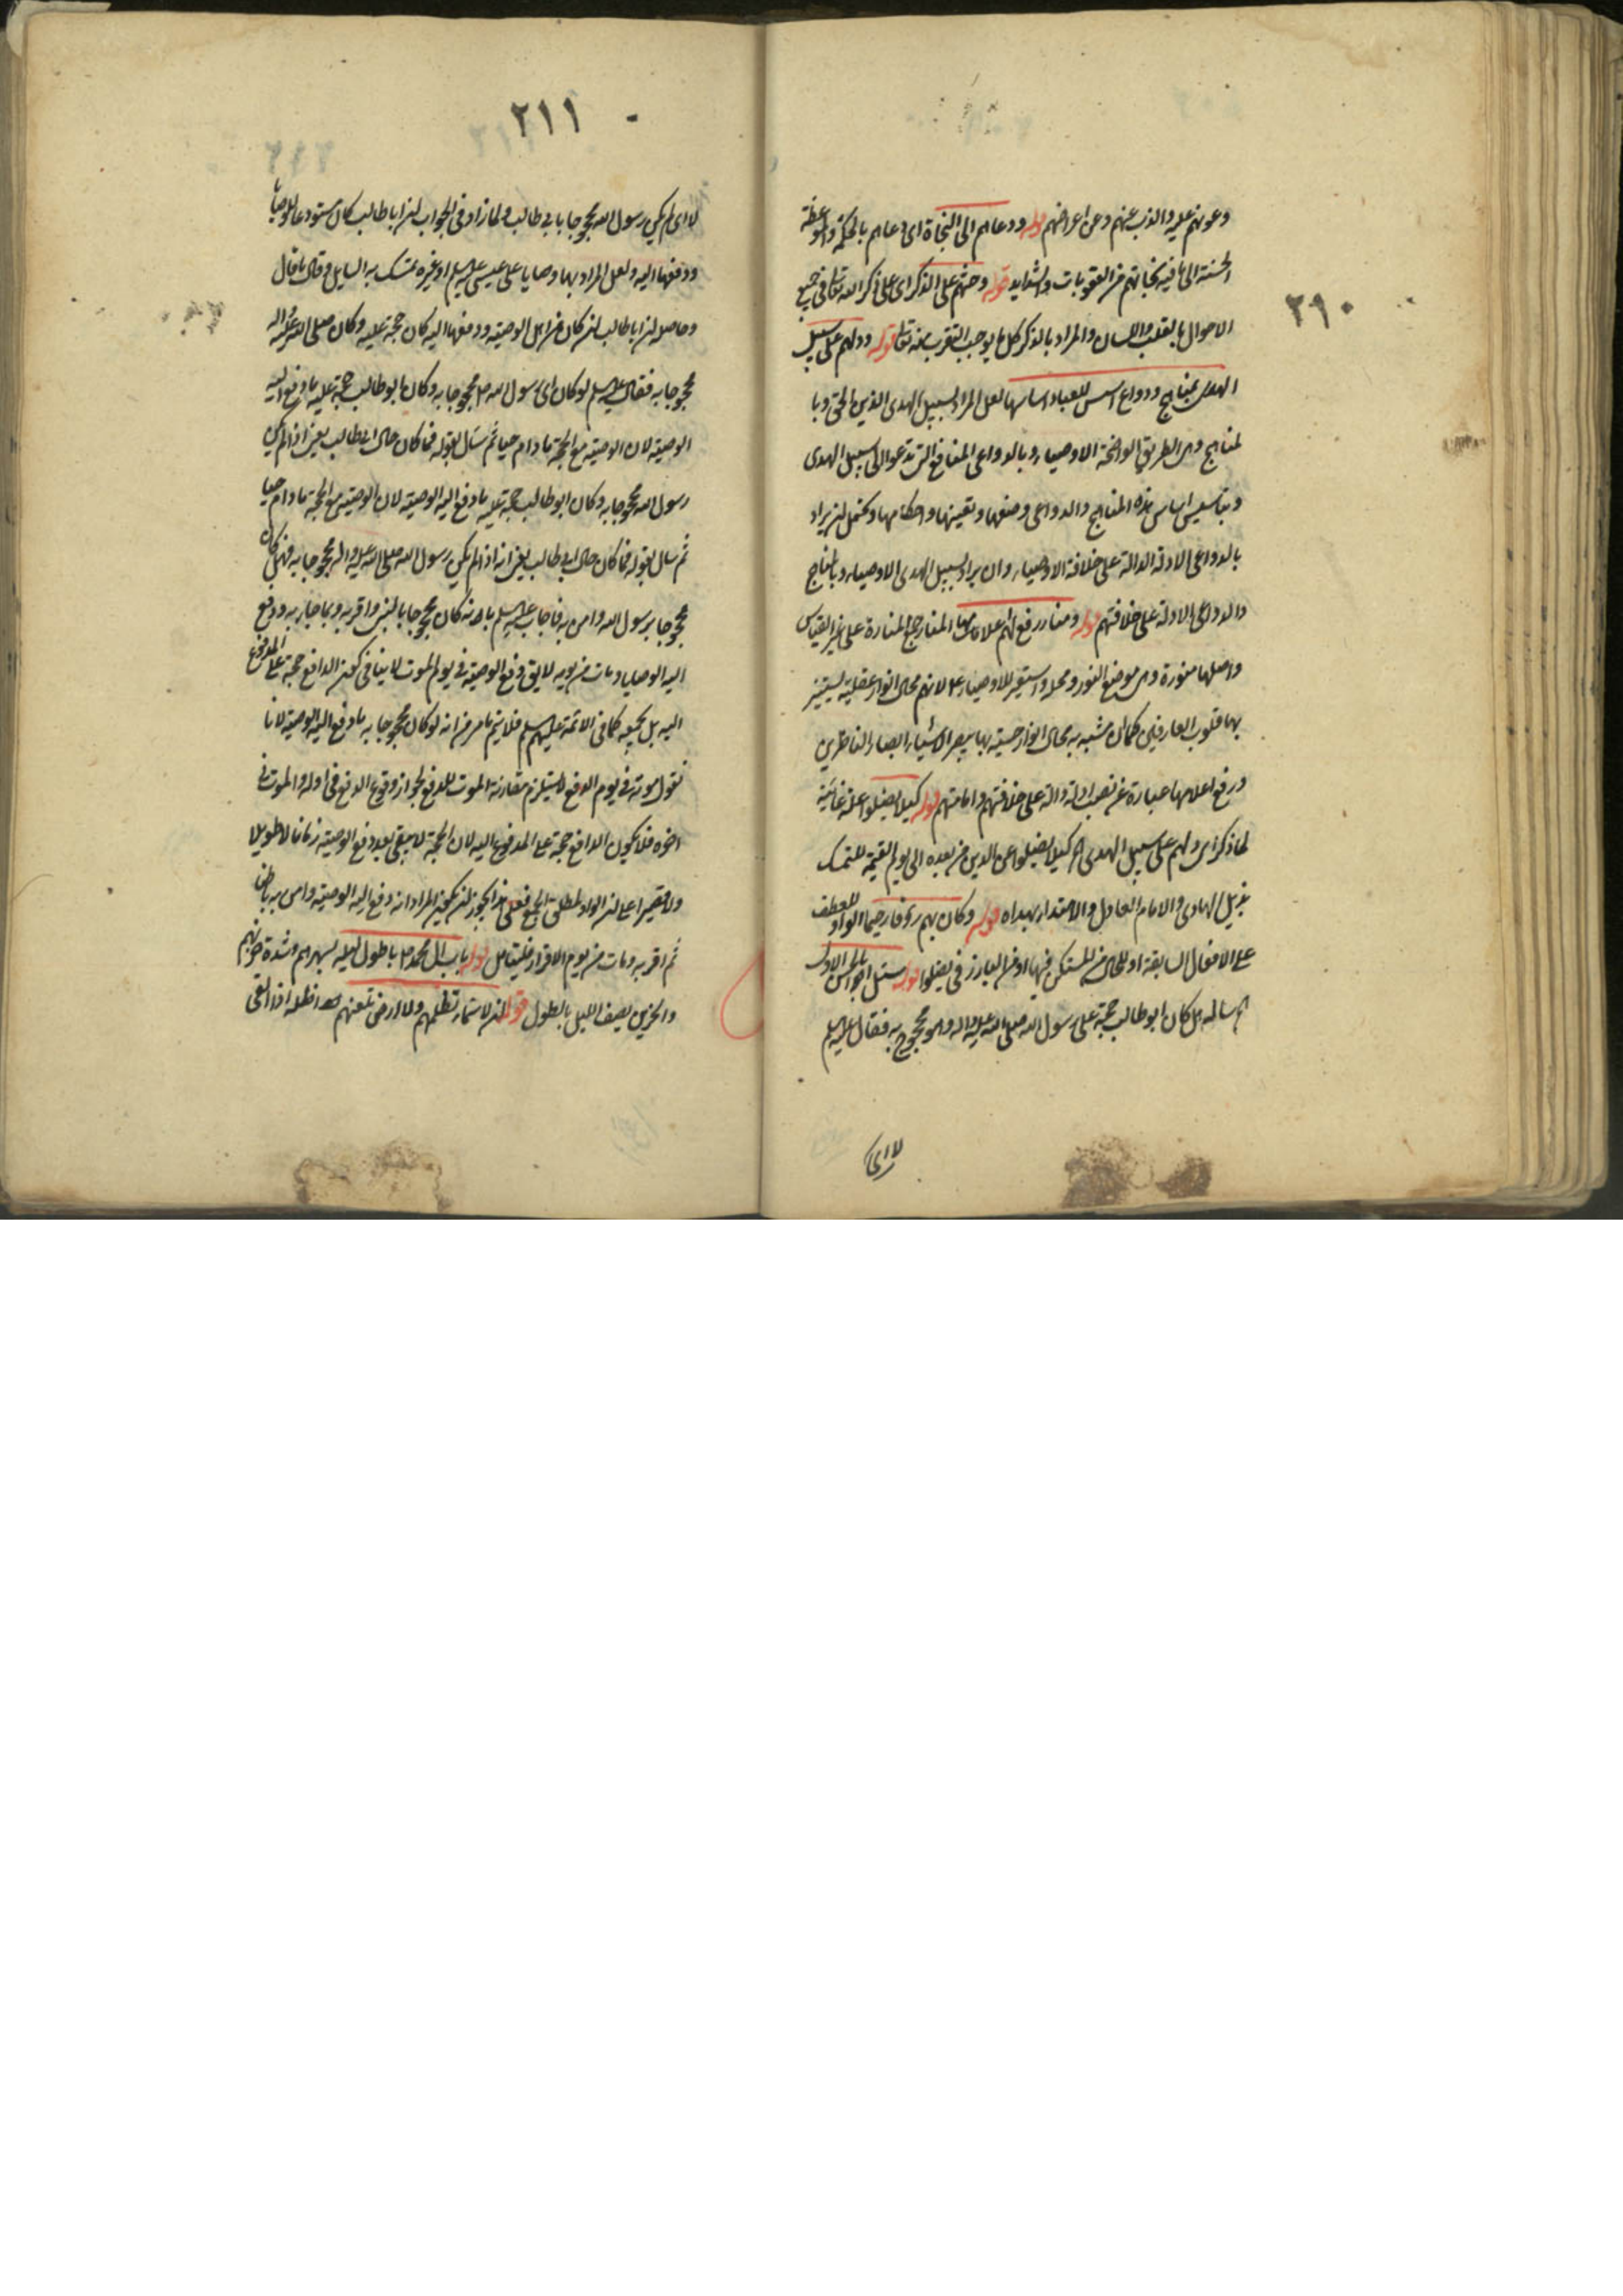 ٢٩٠
وعونهم عليه والذب عنهم وعن اعراضهم قوله ودعاهم الى النجاة اى دعاهم بالحكمة والموعظة
الحسنة الى ما فيه نجاتهم من العقوبات والشدايد قوله وحثهم على الذكر اى على ذكر الله تعالى فى جميع
الاحوال بالقلب واللسان والمراد بالذكر كل ما يوجب التقرب منه تعالى قوله ودلهم على سبيل
الهدى بمناهج ودواع اسس للعباد اساسها لعل المراد بسبيل الهدى الدين الحق وبا
لمناهج وهى الطريق الواضحة الاوصياء وبالدواعى المنافع التى تدعو الى سبيل الهدى
وبتاسيس اساس هذه المناهج والدواعى وضعها وتعيينها واحكامها ويحتمل ان يراد
بالدواعى الادلة الدالة على خلافة الاوصياء وان يراد بسبيل الهدى الاوصياء وبالمناهج
والدواعى الادلة على خلافتهم قوله ومنار رفع لهم اعلامها المنار جمع المنارة على غير القياس
واصلها منورة وهى موضع النور ومحله واستعير للاوصياء ع لانهم محال انوار عقلية يستنير
بها قلوب العارفين كما ان مشبه به محال انوار حسية بها يبصر الاشياء ابصار الناظرين
ورفع اعلامها عبارة عن نصب ادلة دالة على خلافتهم وامامتهم قوله كيلا يضلوا علة غائية
لما ذكر اى دلهم على سبيل الهدى كيلا يضلوا عن الدين من بعده الى يوم القيمة للتمسك
بذيل الهادى والامام العادل والاهتداء بهداه قوله وكان بهم رؤفا رحيما الواو للعطف
على الافعال السابقة او للحال من المستكن فيها او من البارز فى يضلوا قوله سئل ابو الحسن الاول
ع سأله هل كان ابو طالب حجة على رسول الله صلى الله عليه واله وهو محجوج به فقال عليه السلم
لا اى
٢١١
لا اى لم يكن رسول الله محجوجا بابى طالب ولما زاد فى الجواب ان ابا طالب كان مستودعا للوصايا
ودفعها اليه ولعل المراد بها وصايا على عيسى عليه السلم او غيره تمسك به السايل وقال ما قال
وحاصله ان ابا طالب ان كان من اهل الوصية ودفعها اليه كان حجة عليه وكان صلى الله عليه واله
محجوجا به فقال عليه السلم لو كان اى رسول الله ص محجوجا به وكان ابو طالب حجة عليه ما دفع اليه
الوصية لان الوصية مع الحجة ما دام حيا ثم سئل بقوله فما كان حال ابى طالب يعنى اذا لم يكن
رسول الله محجوجا به وكان ابو طالب حجة عليه ما دفع اليه الوصية لان الوصية مع الحجة ما دام حيا
ثم سال بقوله فما كان حال ابى طالب يعنى انه اذا لم يكن رسول الله صلى الله عليه واله محجوجا به فهل كان
محجوجا برسول الله وامن به فاجاب عليه السلم بانه كان محجوجا بالنبى واقر به وبما جاء به ودفع
اليه الوصايا ومات من يومه لا يق دفع الوصية فى يوم الموت لا ينافى كون الدافع حجة على المدفوع
اليه بل يجتمعه كما فى الائمة عليهم السلم فلا يتم ما مر من انه لو كان محجوجا به ما دفع اليه الوصية لانا
نقول موته فى يوم الدفع لا يستلزم مقارنة الموت للدفع لجواز وقوع الدفع فى اوله والموت فى
اخره فلا يكون الدافع حجة على المدفوع اليه لان الحجة لا يبقى بعد دفع الوصية زمانا لا طويلا
ولا قصيرا على ان الواو لمطلق الجمع فعلى هذا يجوز ان يكون المراد انه دفع اليه الوصية وامن به باطنا
ثم اقر به ومات من يوم الاقرار فليتامل قوله بات ال محمد ص باطول ليلة لسهرهم وشدة حزنهم
والحزين يصف الليل بالطول قوله ان لا سماء تظلهم ولا ارض تقلهم اظله اذا القى